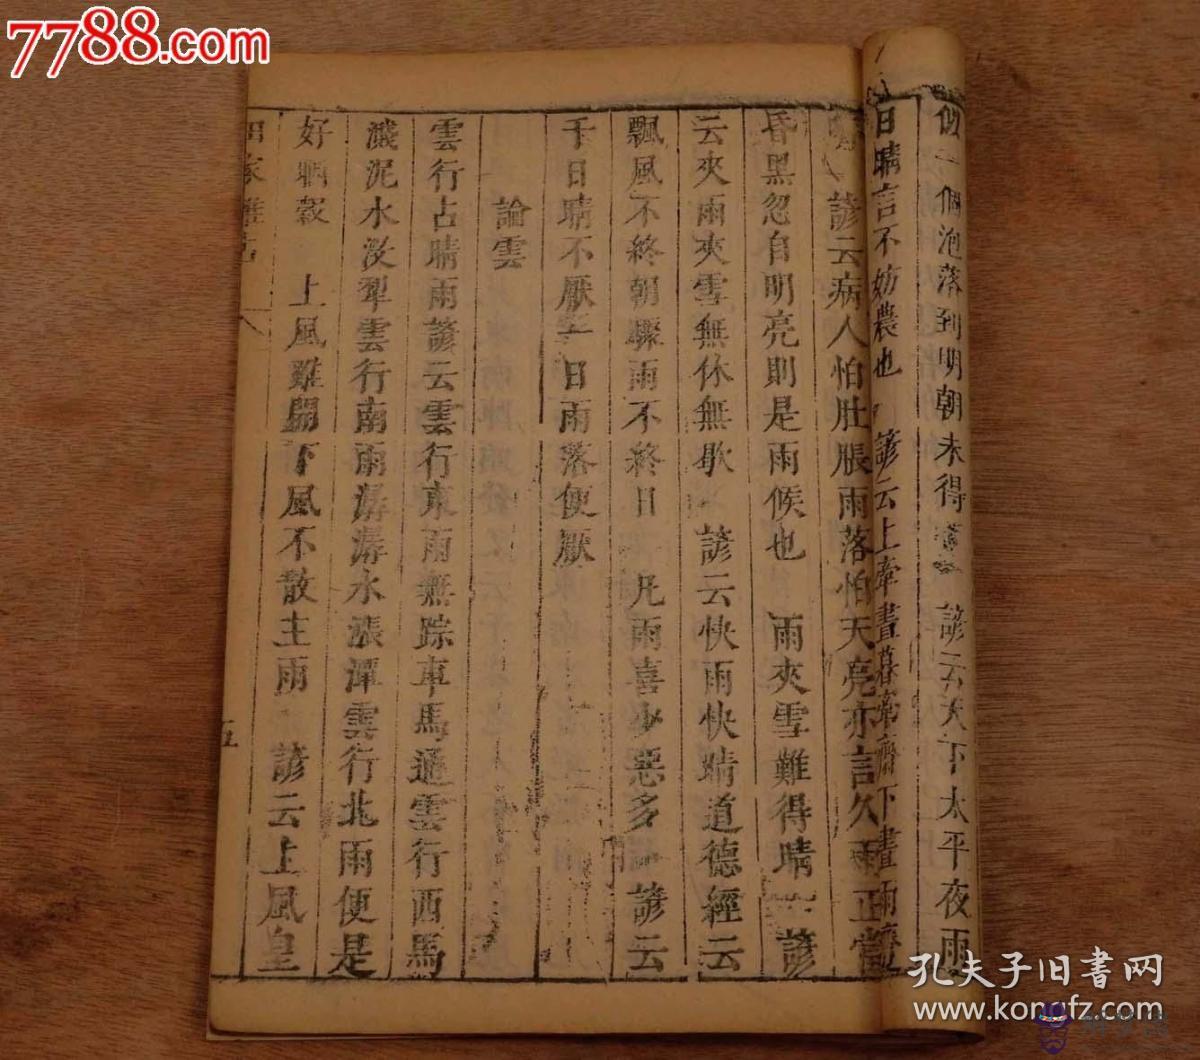 7788.com
個泡落到明朝未得 諺云天下太平夜雨
日晴言不妨農也 諺云上牽晝暮牽齋下晝雨
諺云病人怕肚脹雨落怕天亮亦言久雨正當
昏黑忽自明亮則是雨候也 雨夾雪難得晴 諺
云夾雨夾雪無休無歇 諺云快雨快晴道德經云
飄風不終朝驟雨不終日 凡雨喜少惡多 諺云
千日晴不厭一日雨落便厭
論雲
雲行占晴雨諺云雲行東雨無踪車馬通雲行西馬
濺泥水沒犁雲行南雨潺潺水漲潭雲行北雨便是
好晒穀 上風雖開下風不散主雨 諺云上風皇
田家雜占
五
孔夫子旧書网
www.kongfz.com